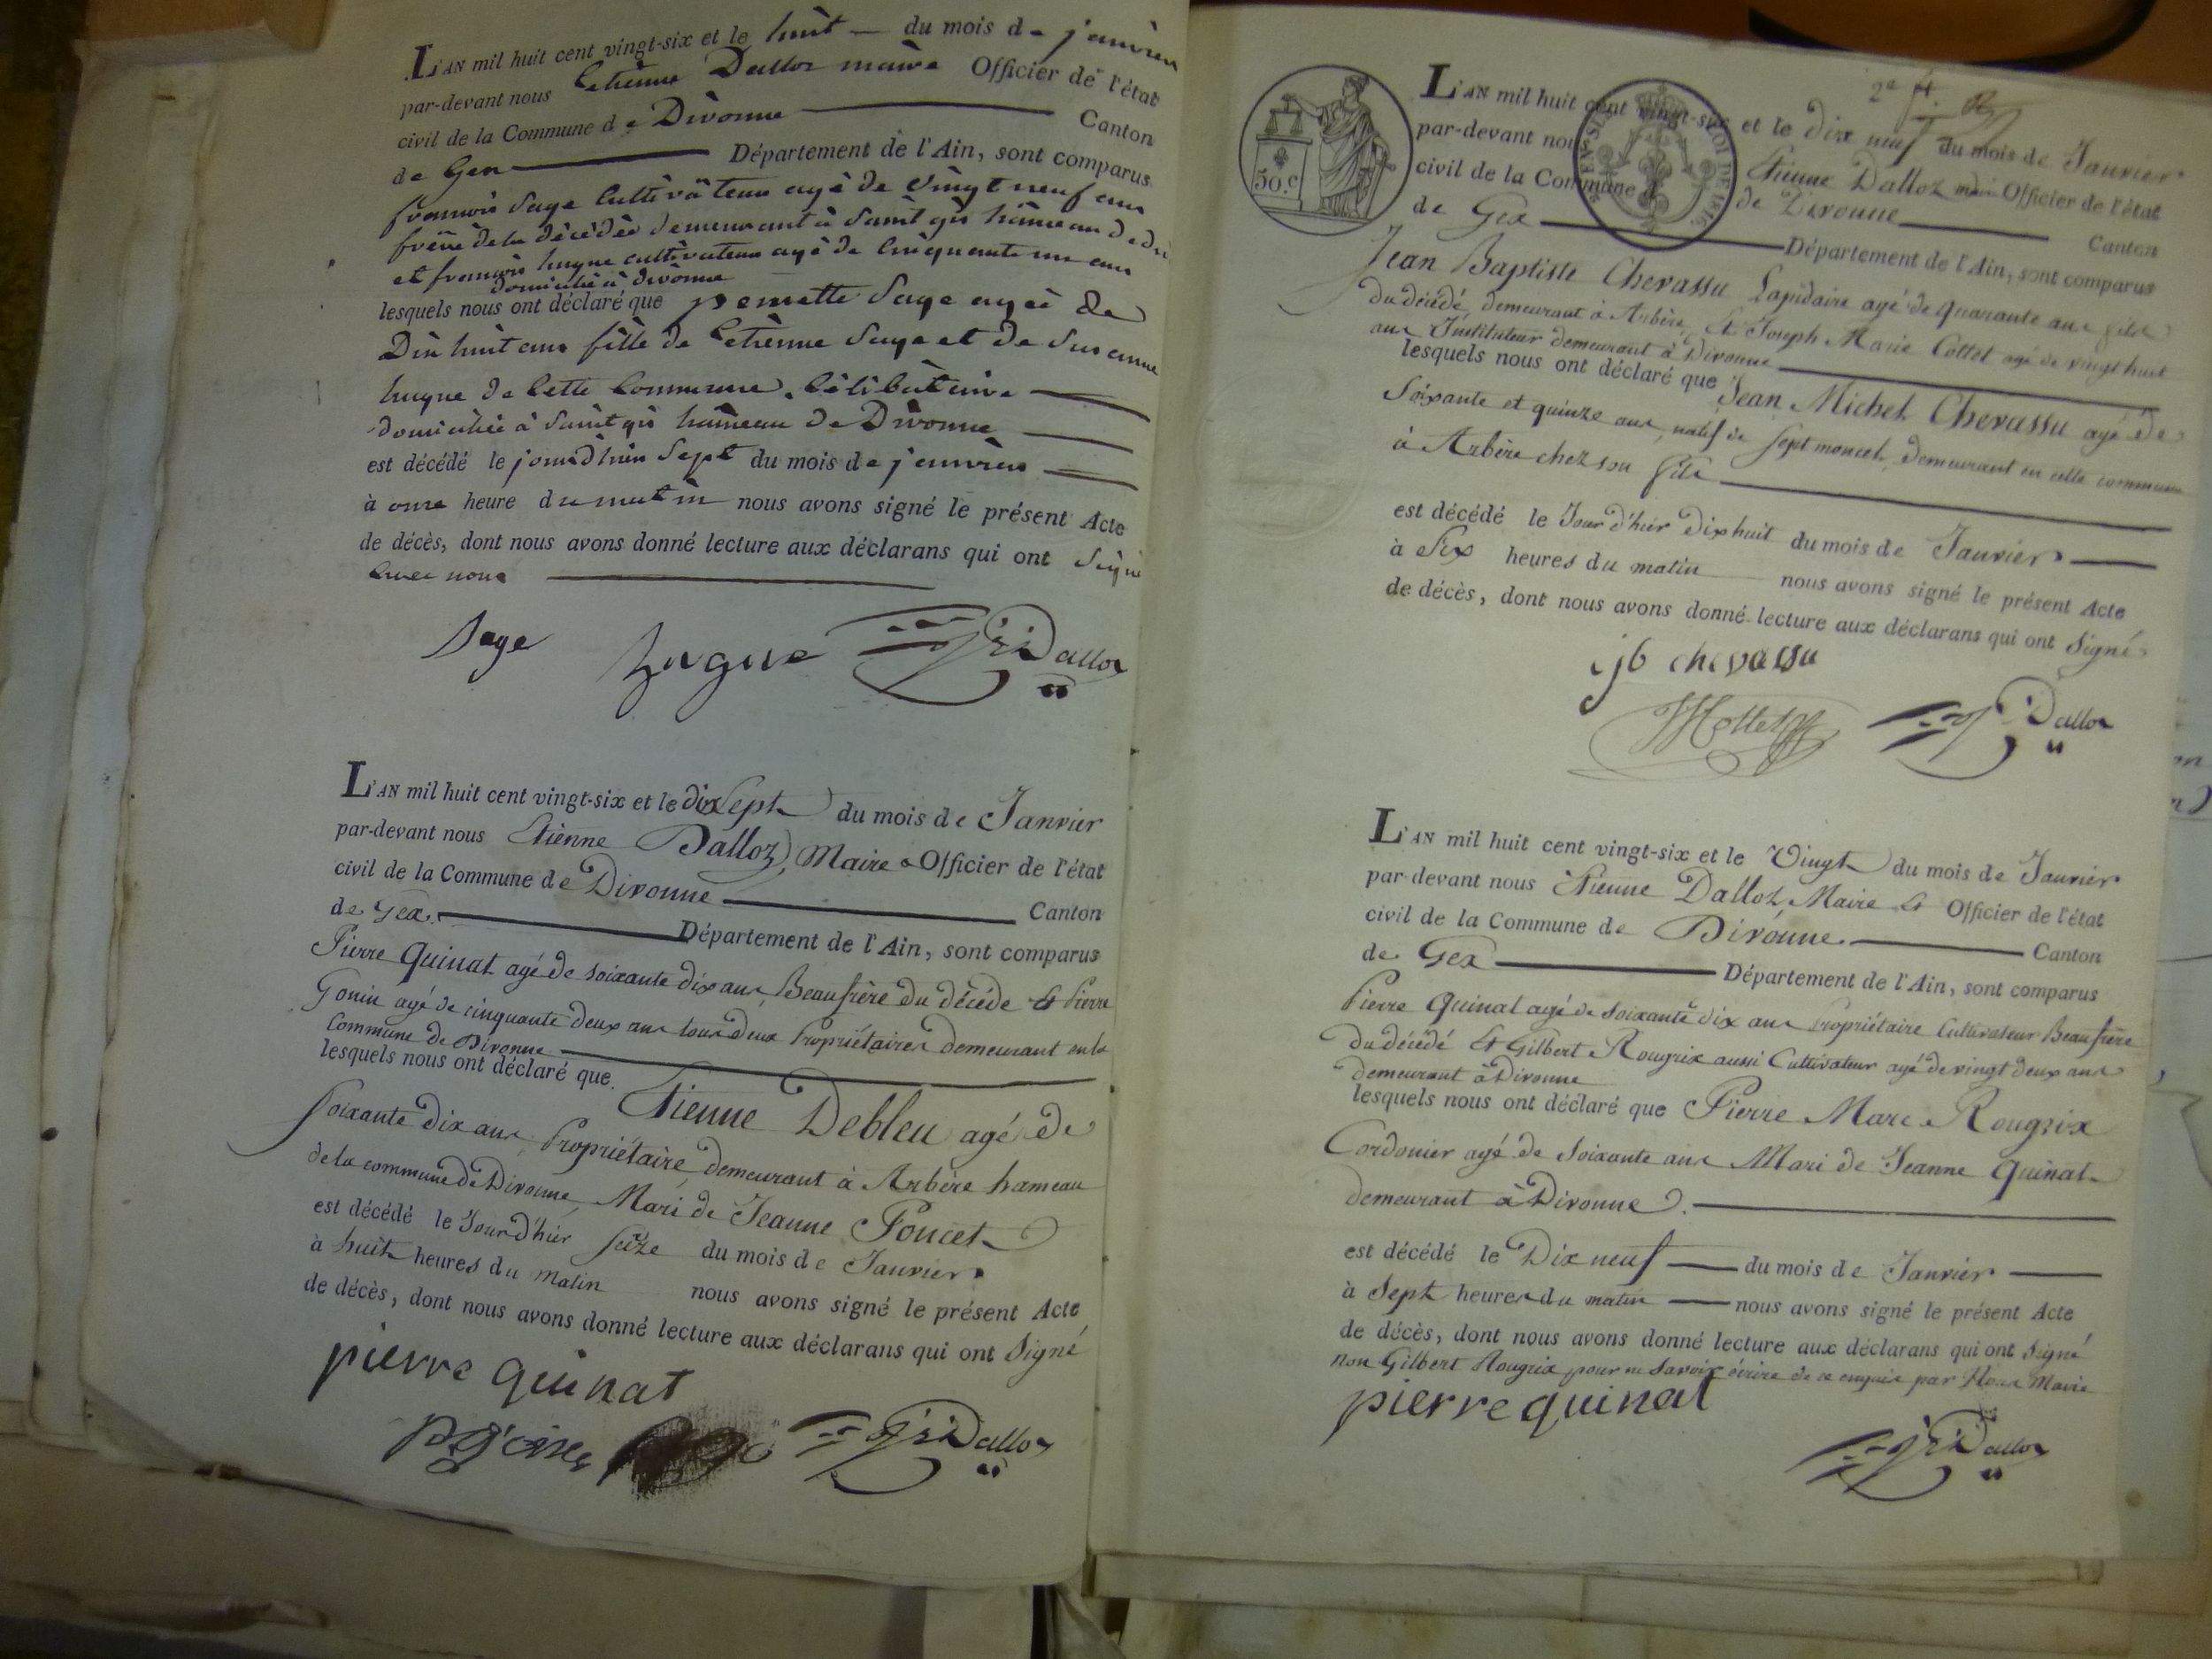 L'AN mil huit cent vingt-six et le huit du mois de janvier
par-devant nous Etienne Dalloz maire Officier de l'état
civil de la Commune de Divonne Canton
de Gex Département de l'Ain, sont comparus
francois Sage Cultivateur agé de vingt neuf ans
frère de la décédée demeurant à Saint gis hameau de
et francois hugue cultivateur agé de cinquante un ans
domicilié à divonne
lesquels nous ont déclaré que pernette Sage agée de
Dix huit ans fille de Etienne Sage et de Susanne
hugue de Cette Commune. Célibataire
domiciliée à Saint gis hameau de Divonne
est décédé le jour d'hier Sept du mois de janvier
à onze heure du matin nous avons signé le présent Acte
de décès, dont nous avons donné lecture aux déclarans qui ont Signé
avec nous
Sage hugue Dalloz
L'AN mil huit cent vingt-six et le dix Sept du mois de Janvier
par-devant nous Etienne Dalloz, Maire & Officier de l'état
civil de la Commune de Divonne Canton
de Gex. Département de l'Ain, sont comparus
Pierre Quinat agé de soixante dix ans Beaufrère du décédé & Pierre
Gonin agé de cinquante deux ans tous deux Propriétaires demeurant en la
Commune de Divonne
lesquels nous ont déclaré que Etienne Debleu agé de
soixante dix ans, Propriétaire, demeurant à Arbère hameau
de la commune de Divonne, Mari de Jeanne Poncet
est décédé le Jour d'hier seize du mois de Janvier
à huit heures du matin nous avons signé le présent Acte
de décès, dont nous avons donné lecture aux déclarans qui ont Signé
pierre quinat
Dalloz
2e
50.c
L'AN mil huit cent vingt-six et le dix neuf du mois de Janvier
par-devant nous Etienne Dalloz maire Officier de l'état
civil de la Commune de Divonne Canton
de Gex Département de l'Ain, sont comparus
Jean Baptiste Chevassu Lapidaire agé de quarante ans fils
du décédé, demeurant à Arbère, & Joseph Marie Cottet agé de vingt huit
ans Instituteur demeurant à Divonne
lesquels nous ont déclaré que Jean Michel Chevassu agé de
Soixante et quinze ans, natif de Sept moncel, demeurant en cette commune
à Arbère chez son fils
est décédé le Jour d'hier Dix huit du mois de Janvier
à Six heures du matin nous avons signé le présent Acte
de décès, dont nous avons donné lecture aux déclarans qui ont Signé
jb chevassu
Cottet Dalloz
L'AN mil huit cent vingt-six et le Vingt du mois de Janvier
par-devant nous Etienne Dalloz, Maire & Officier de l'état
civil de la Commune de Divonne. Canton
de Gex Département de l'Ain, sont comparus
Pierre Quinat agé de soixante dix ans Propriétaire Cultivateur Beaufrère
du décédé & Gilbert Rougrix aussi Cultivateur agé de vingt deux ans
demeurant à Divonne
lesquels nous ont déclaré que Pierre Marc Rougrix
Cordonier agé de Soixante ans Mari de Jeanne Quinat
demeurant à Divonne.
est décédé le Dix neuf du mois de Janvier
à Sept heures du matin nous avons signé le présent Acte
de décès, dont nous avons donné lecture aux déclarans qui ont Signé
non Gilbert Rougrix pour ne Savoir écrire de ce enquis par Nous Maire
pierre quinat
Dalloz